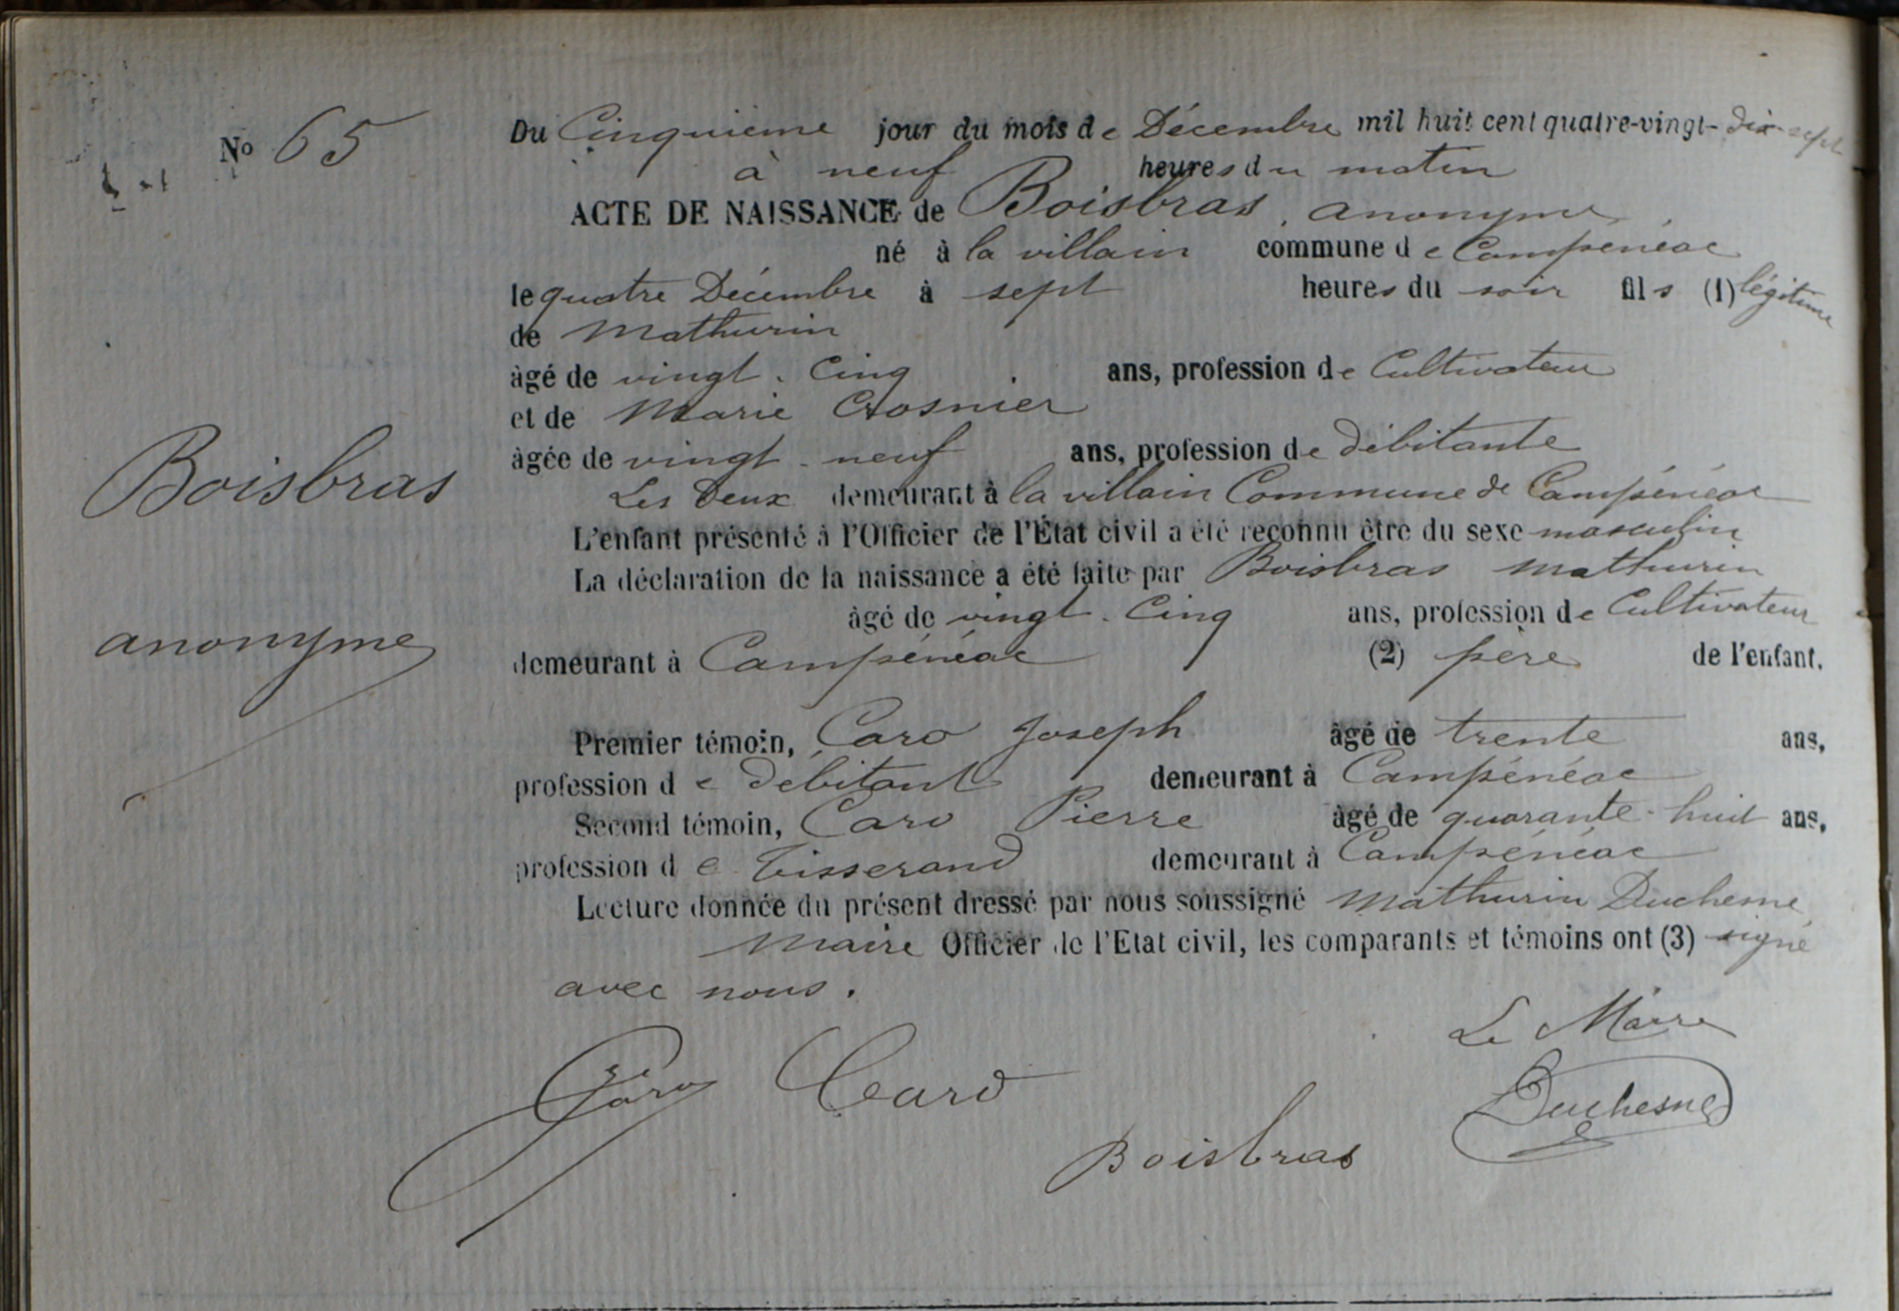 No 65
Du Cinquième jour du mois de Décembre mil huit cent quatre-vingt-dix-sept
à neuf heures du matin
ACTE DE NAISSANCE de Boisbras, anonyme
né à la villain commune de Campénéac
le quatre Décembre à sept heures du soir fils (1) légitime
de Mathurin
âgé de vingt-cinq ans, profession de Cultivateur
et de Marie Crosnier
âgée de vingt-neuf ans, profession de débitante
Les Deux demeurant à la villain Commune de Campénéac
Boisbras
L'enfant présenté à l'Officier de l'État civil a été reconnu être du sexe masculin
La déclaration de la naissance a été faite par Boisbras Mathurin
âgé de vingt-cinq ans, profession de Cultivateur
anonyme
demeurant à Campénéac (2) père de l'enfant.
Premier témoin, Caro Joseph âgé de trente ans,
profession de débitant demeurant à Campénéac
Second témoin, Caro Pierre âgé de quarante-huit ans,
profession de Tisserand demeurant à Campénéac
Lecture donnée du présent dressé par nous soussigné Mathurin Duchesne
Maire Officier de l'Etat civil, les comparants et témoins ont (3) signé
avec nous.
Le Maire
Caro Caro Duchesne
Boisbras